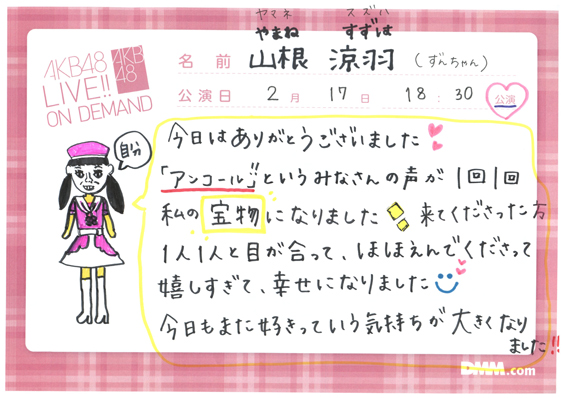 ヤマネ スズハ
やまね すずは
AKB48 LIVE!! ON DEMAND
AKB48
名前 山根 涼羽 (ずんちゃん)
公演日 2月 17日 18:30 公演
自分
今日はありがとうございました
「アンコール!!」というみなさんの声が1回1回
私の宝物になりました 来てくださった方
1人1人と目が合って、ほほえんでくださって
嬉しすぎて、幸せになりました
今日もまた好きっていう気持ちが大きくなり
ました!!
DMM.com